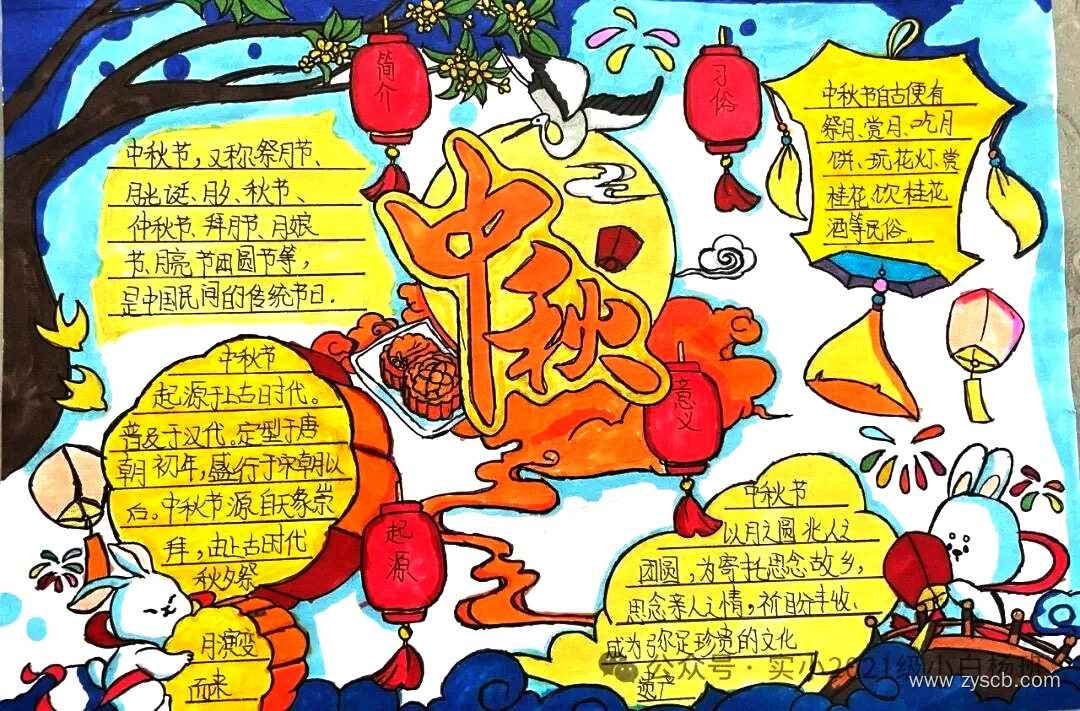 简介
中秋节，又称祭月节、
月光诞、月夕、秋节、
仲秋节、拜月节、月娘
节、月亮节、团圆节等，
是中国民间的传统节日.
中秋
习俗
中秋节自古便有
祭月、赏月、吃月
饼、玩花灯、赏
桂花、饮桂花
酒等民俗。
起源
中秋节
起源于上古时代。
普及于汉代。定型于唐
朝初年，盛行于宋朝以
后。中秋节源自天象崇
拜，由上古时代
秋夕祭
月演变
而来
意义
中秋节
以月之圆兆人之
团圆，为寄托思念故乡，
思念亲人之情，祈盼丰收、
成为弥足珍贵的文化
遗产
公众号·实小2021级小白杨班
www.zyscb.com